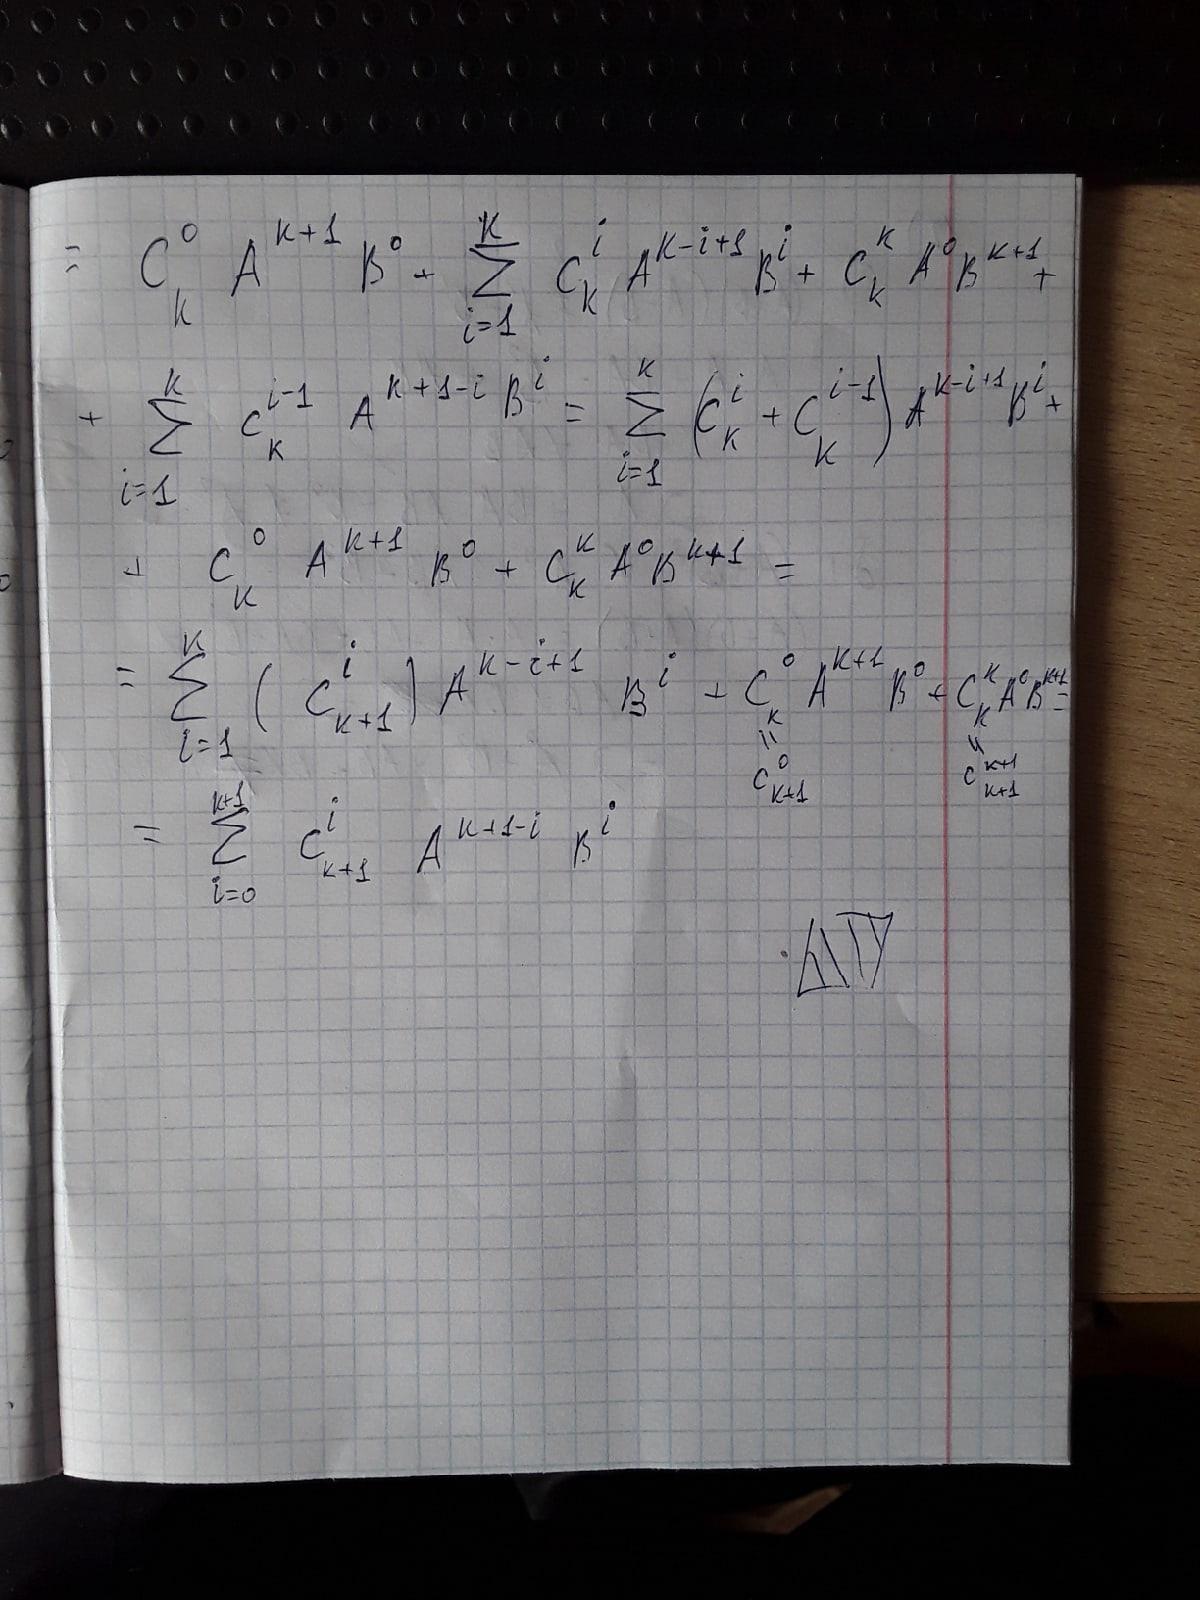 = C_k^0 A^{k+1} B^0 + \sum_{i=1}^{k} C_k^i A^{k-i+1} B^i + C_k^k A^0 B^{k+1} +
+ \sum_{i=1}^{k} C_k^{i-1} A^{k+1-i} B^i = \sum_{i=1}^{k} (C_k^i + C_k^{i-1}) A^{k-i+1} B^i +
+ C_k^0 A^{k+1} B^0 + C_k^k A^0 B^{k+1} =
= \sum_{i=1}^{k} (C_{k+1}^i) A^{k-i+1} B^i + C_k^0 A^{k+1} B^0 + C_k^k A^0 B^{k+1} =
= =
C_{k+1}^0 C_{k+1}^{k+1}
= \sum_{i=0}^{k+1} C_{k+1}^i A^{k+1-i} B^i